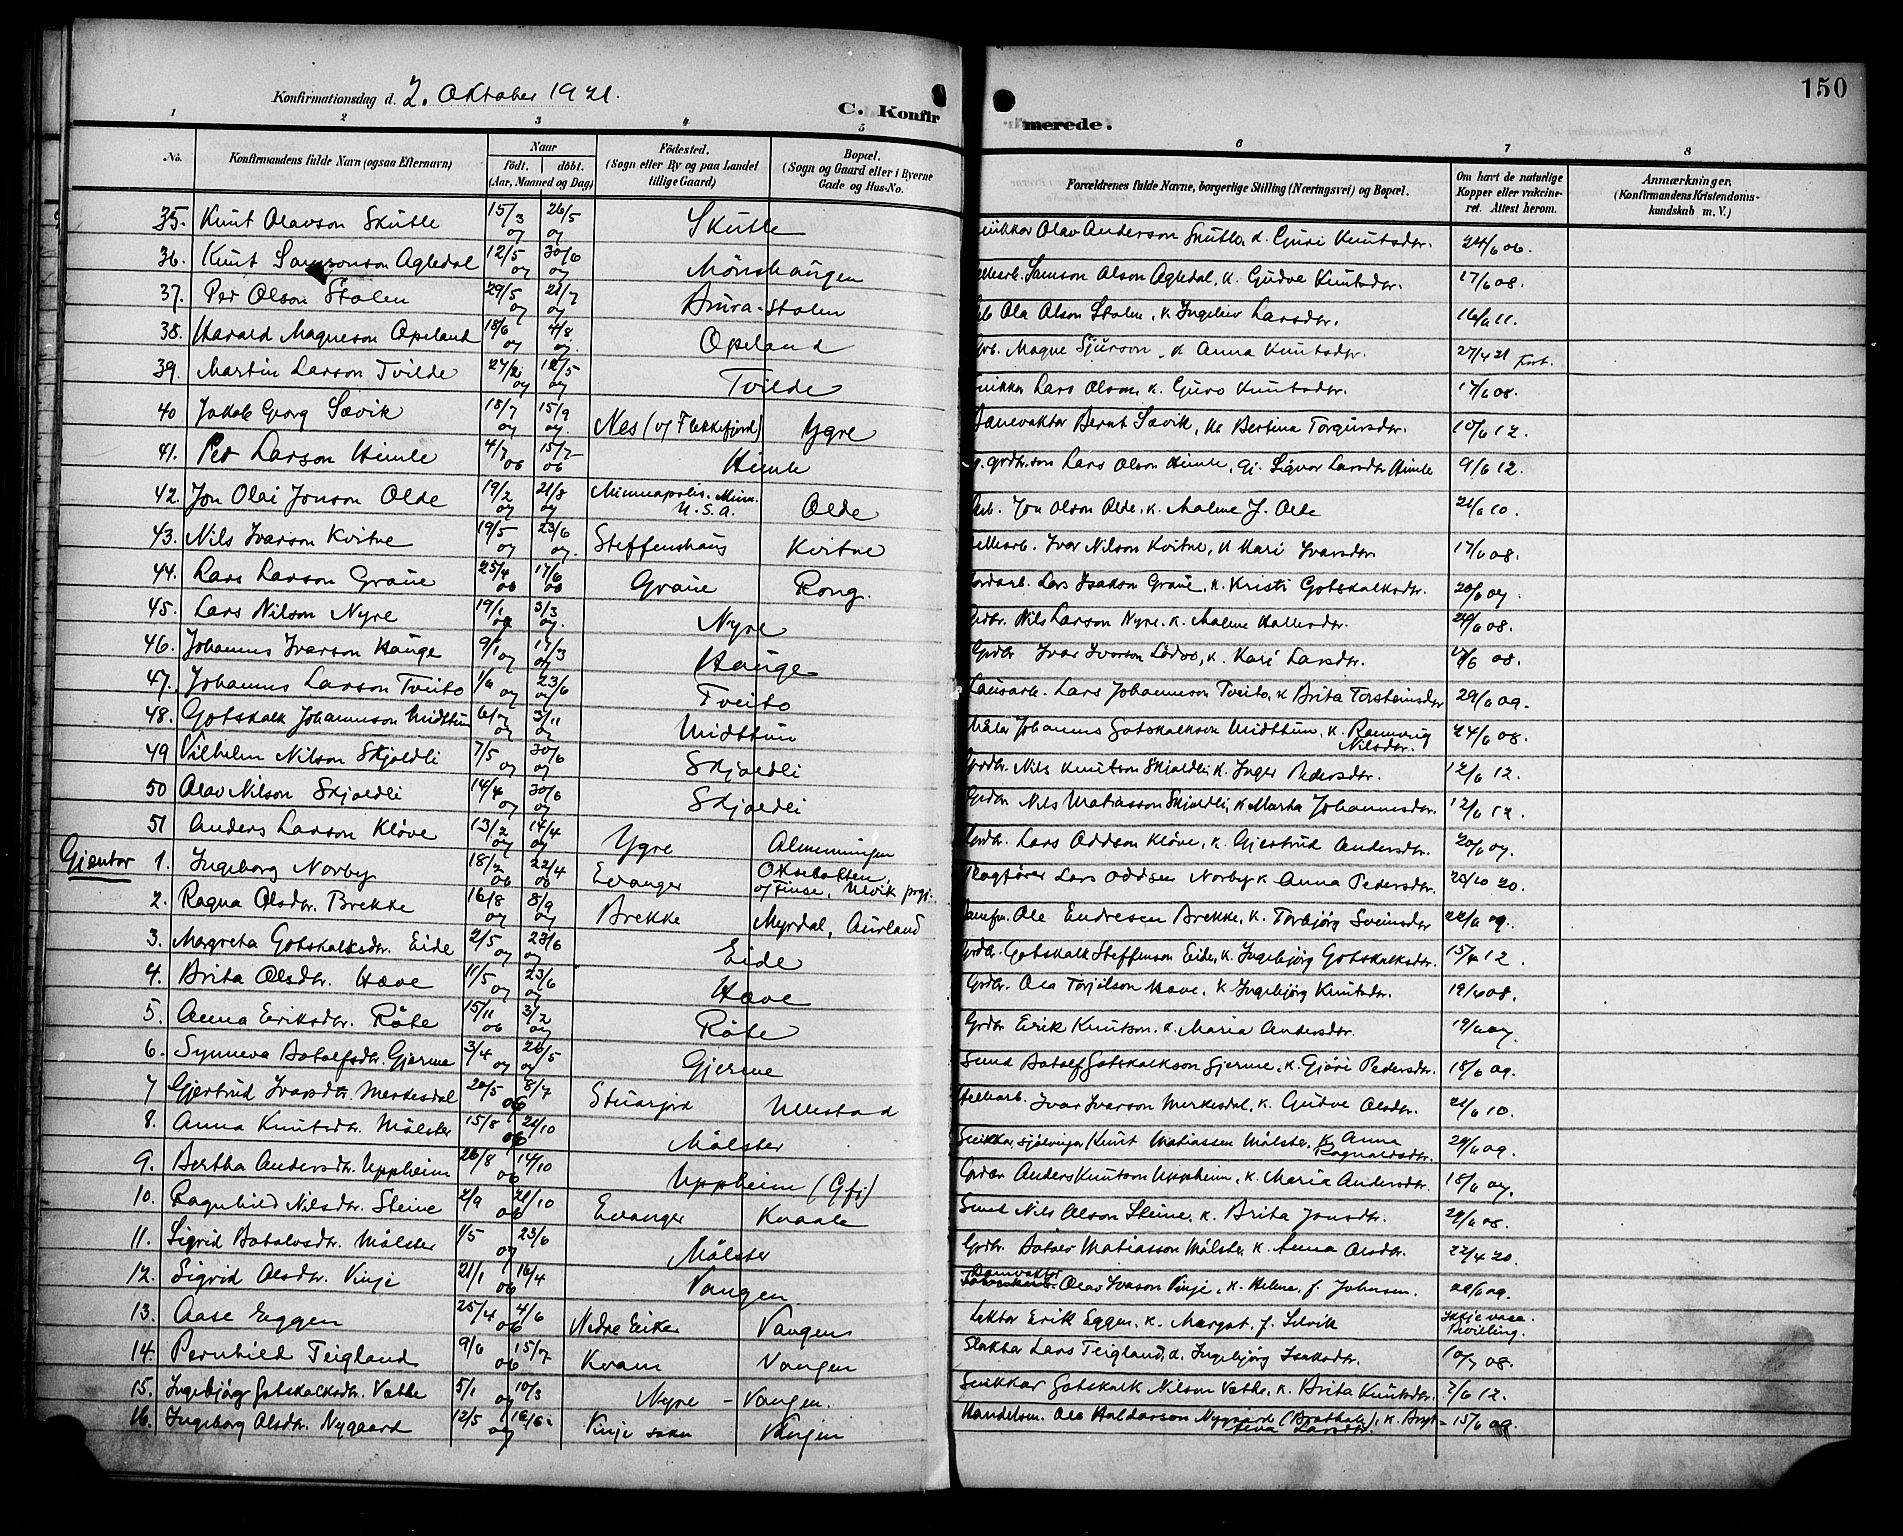 150
Konfirmationsdag d. 2. Oktober 1921.
C. Konfir merede.
1 2 3 4 5 6 7 8
No.
Konfirmandens fulde Navn (ogsaa Efternavn)
Naar
født. døbt.
(Aar, Maaned og Dag)
Fødested.
(Sogn eller By og paa Landet
tillige Gaard)
Bopæl.
(Sogn og Gaard eller i Byerne
Gade og Hus-No.
Forældrenes fulde Navne, borgerlige Stilling (Næringsvei) og Bopæl.
Om havt de naturlige
Kopper eller vakcine-
ret. Attest herom.
Anmærkninger.
(Konfirmandens Kristendoms-
kundskab m. V.)
35. Knut Olavson Skutle 15/3 07 26/5 07 Skutle Olav Anderson Skutle, k. Guri Knutsdtr. 24/6 06.
36. Knut Samsonson Agledal 12/5 07 30/6 07 Mönshaugen Samson Olson Agledal, k. Gudve Knutsdtr. 17/6 08.
37. Per Olson Stolen 29/5 07 21/7 07 Bura-Stolen Ola Olson Stolen, k. Ingeleiv Larsdtr. 16/6 11.
38. Harald Magneson Opeland 18/6 07 4/8 07. Opeland Magne Sjurson, k. Anna Knutsdtr. 27/4 21
39. Martin Larson Tvilde 24/2 07 12/5 07 Tvilde Lars Olson, k. Guro Knutsdtr. 17/6 08.
40 Jakob Georg Sævik 18/7 07 15/9 07. Nes (v/ Flekkefjord) Ygre Banevakter Bernt Sævik, k. Bertina Torgersdtr. 10/6 12.
41. Per Larson Himle 4/7 06 15/7 06 Himle grdbr.son Lars Olson Himle, gj. Signor Larsdtr Himle 9/6 12.
42. Jon Olai Jonson Olde 19/2 07 21/8 07 Minneapolis. Minn. U.S.A. Olde Arb. Jon Olson Olde, k. Malene J. Olde 21/6 10.
43. Nils Ivarson Kvitne 19/5 07 23/6 07. Steffenshaug Kvitne Ivar Nilson Kvitne, k Kari Ivarsdtr 17/6 08.
44. Lars Larson Graue 25/4 06 17/6 06 Graue Rong. Jordarb. Lars Isakson Graue, k. Kristi Gotskalksdtr. 20/6 07.
45. Lars Nilson Nyre 19/1 07 3/3 07. Nyre Nils Larson Nyre, k. Malene Hallesdtr. 29/6 08.
46. Johannes Ivarson Hauge 9/1 07 17/3 07 Hauge Grdbr Ivar Ivarson Lödve, k. Kari Larsdtr. 17/6 08.
47. Johannes Larson Tveito 1/6 07 23/6 07 Tveito Lausarb. Lars Johanneson Tveito, k Brita Torsteinsdtr 29/6 09.
48. Gotskalk Johanneson Midttun 6/7 07 3/11 07 Midttun Maler Johannes Gotskalkson Midttun, k. Rannveig Nilsdtr. 24/6 08.
49 Vilhelm Nilson Skjeldli 7/5 07 30/6 07 Skjeldli Grdbr. Nils Knutson Skjeldli, k. Inger Pedersdtr. 12/6 12.
50 Olav Nilson Skjeldli 14/4 07 30/6 07 Skjeldli Grdbr Nils Matiasson Skjeldli, k Marta Johannesdtr. 12/6 12.
51 Anders Larson Klöve 13/2 07 14/4 07 Ygre Almenningen Grdbr. Lars Oddson Klöve, k. Gjertrud Andersdtr. 20/6 07.
Gjentor 1. Ingeborg Norby 18/2 06 22/4 06 Evanger Oksebotten, v/ Finse, Ulvik prgj. Lars Oddsen Norby k. Anna Pedersdtr. 20/10 20.
2. Ragna Olsdtr. Brekke 16/8 07 8/9 07 Brekke Myrdal, Aurland Ole Endresen Brekke, k. Torbjörg Sveinsdtr 22/6 09.
3. Margreta Gotskalksdtr. Eide 2/5 07 23/6 07 Eide Grdbr. Gotskalk Steffenson Eide, k. Ingebjörg Gotskalksdtr. 15/6 12.
4. Brita Olsdtr. Hæve 11/5 07 23/6 07 Hæve Grdbr. Ola Torjilson Hæve, k Ingebjörg Knutsdtr. 19/6 08.
5. Anna Eiriksdtr. Röte 15/11 06 3/2 07 Röte Grdbr Eirik Knutson, k. Maria Andersdtr. 19/6 07.
6. Synneva Botolfsdtr. Gjerme 3/4 07 26/5 07 Gjerme Smed Botolf Gotskalkson Gjerme, k. Gjöri Pedersdtr. 18/6 09.
7 Gjertrud Ivarsdtr. Merkesdal 20/5 06 8/7 Ullestad Ivar Ivarson Merkesdal, k. Gudve Olsdtr. 21/6 10.
8. Anna Knutsdtr. Mölster 15/8 06 21/10 Mölster Snikkar, sjölveigar Knut Matiassen Mölster, k. Anna Ragnaldsdtr. 29/6 09.
9. Bertha Andersdtr. Uppheim 26/8 06 14/10 Uppheim (Gfj) Grdbr Anders Knutson Uppheim, k. Maria Andersdtr. 18/6 07.
10. Ragnhild Nilsdtr. Steine 2/9 06 21/10 Evanger Kvaale Smed Nils Olson Steine, k. Brita Jonsdtr. 29/6 08.
11. Sigrid Botolvsdtr. Mölster 1/5 07 23/6 Mölster Grdbr. Botolv Matiasson Mölster k. Anna Olsdtr. 22/4 20.
12. Sigrid Olsdtr. Vinje 21/1 06 16/4 Vangen Banevaktor Olav Ivason Vinje, k. Helene, f. Johnsen. 22/6 09.
13. Aase Eggen 25/4 06 4/6 Nedre Eiker Vangen Lektor Eirik Eggen, k. Margot, f. Selvik Ikkje vacc. Bevilling.
14. Pernhild Teigland 9/6 06 15/7 Kvam Vangen Slaktar Lars Teigland, k. Ingebjörg Isaksdtr. 10/7 08.
15. Ingebjörg Gotskalksdtr. Vethe 5/1 07 10/3 Nyre - Vangen. Snikkar Gotskalk Nilson Vethe, k. Brita Knutsdtr. 7/6 12.
16. Ingeborg Olsdtr. Nygaard 12/5 07 16/6 Vinje sokn Vangen Handelsm. Ola Haldorson Nygaard (Brathole), k. Larsdtr. 15/6 09.